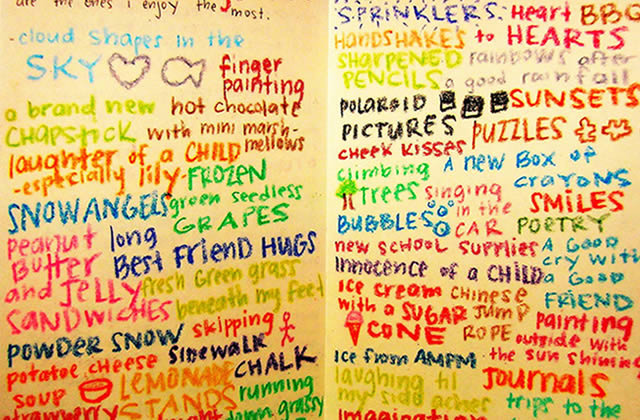 are the ones i enjoy the most.
-cloud shapes in the
SKY
finger
painting
a brand new
CHAPSTICK
hot chocolate
with mini marsh-
mellows
laughter of a CHILD
-especially lily.
FROZEN
green seedless
GRAPES
SNOWANGELS
peanut
Butter
and Jelly
SANDWICHES
long
BEST FRIEND HUGS
fresh Green grass
beneath my feet
POWDER SNOW
skipping
potatoe cheese
soup
SIDEWALK
CHALK
LEMONADE
STANDS
running
strawberry
down grassy
SPRINKLERS.
Heart
BBQ
HANDSHAKES to HEARTS
SHARPENED
PENCILS
rainbows after
a good rainfall
POLAROID
PICTURES
SUNSETS
PUZZLES
cheek kisses
climbing
trees
A new Box of
crayons
singing
in the
CAR
SMILES
BUBBLES
POETRY
new school supplies
A Good
cry with
a Good
FRIEND
INNOCENCE of a CHILD
ice cream
with a SUGAR
CONE
CHINESE
JUMP
ROPE
painting
outside with
the sun shining
ice from AMPM
laughing til
my side aches
Journals
trips to the
imagination